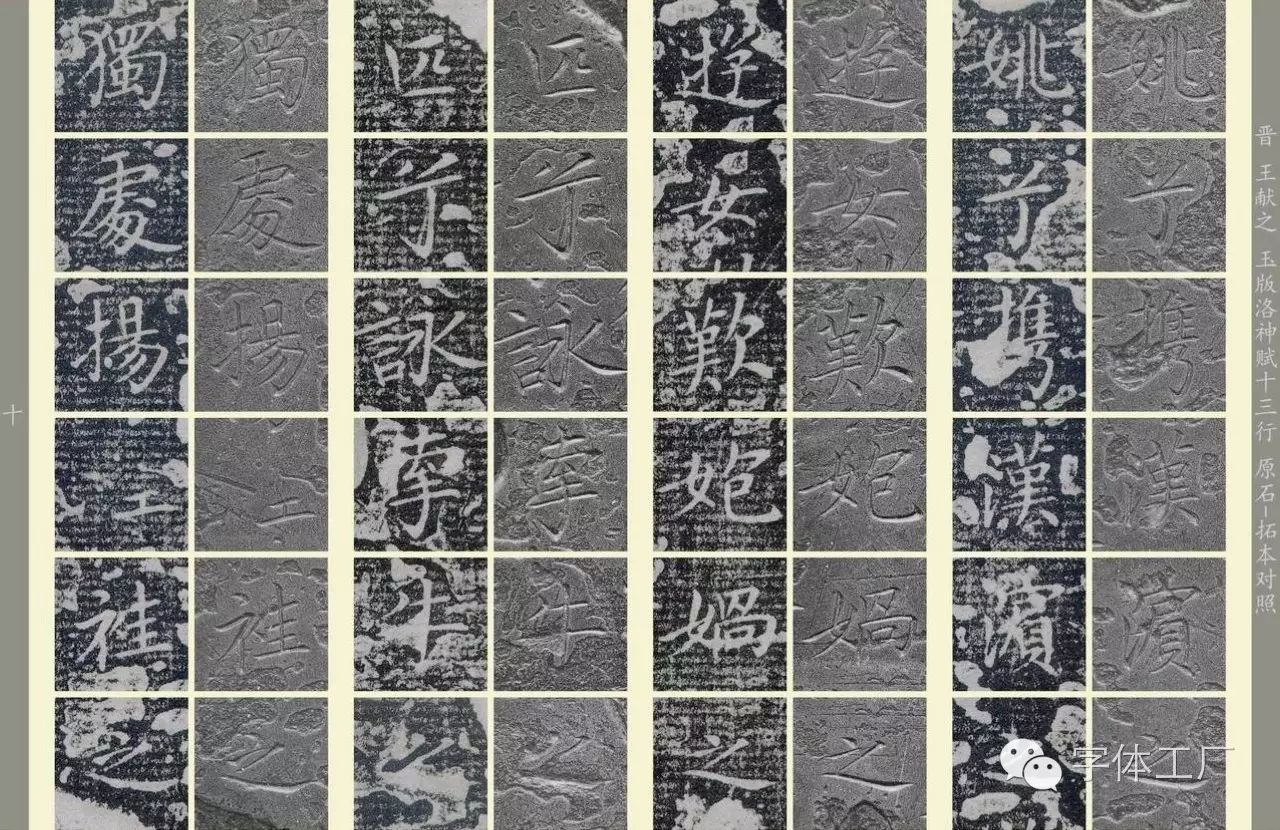 晋 王献之 玉版洛神赋十三行 原石-拓本对照
姚兮攜漢濱之
姚兮攜漢濱之
遊女歎媧之
遊女歎媧之
匹兮詠牽牛之
匹兮詠牽牛之
獨處揚袿之
獨處揚袿之
十
字体工厂